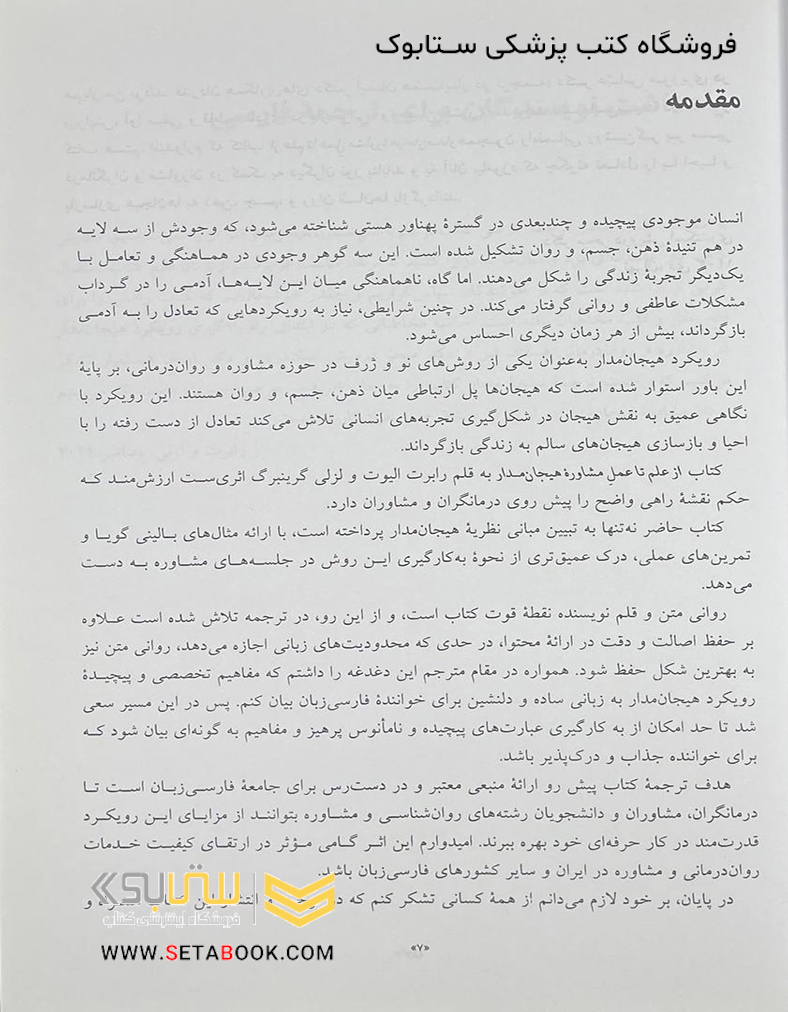 فروشگاه کتب پزشکی ستابوک
مقدمه
انسان موجودی پیچیده و چندبعدی در گسترهٔ پهناور هستی شناخته می‌شود، که وجودش از سه لایه
در هم تنیدهٔ ذهن، جسم، و روان تشکیل شده است. این سه گوهر وجودی در هماهنگی و تعامل با
یک‌دیگر تجربهٔ زندگی را شکل می‌دهند. اما گاه، ناهماهنگی میان این لایه‌ها، آدمی را در گرداب
مشکلات عاطفی و روانی گرفتار می‌کند. در چنین شرایطی، نیاز به رویکردهایی که تعادل را به آدمی
بازگرداند، بیش از هر زمان دیگری احساس می‌شود.
رویکرد هیجان‌مدار به‌عنوان یکی از روش‌های نو و ژرف در حوزه مشاوره و روان‌درمانی، بر پایهٔ
این باور استوار شده است که هیجان‌ها پل ارتباطی میان ذهن، جسم، و روان هستند. این رویکرد با
نگاهی عمیق به نقش هیجان در شکل‌گیری تجربه‌های انسانی تلاش می‌کند تعادل از دست رفته را با
احیا و بازسازی هیجان‌های سالم به زندگی بازگرداند.
کتاب از علم تا عمل مشاورهٔ هیجان‌مدار به قلم رابرت الیوت و لزلی گرینبرگ اثری‌ست ارزش‌مند که
حکم نقشهٔ راهی واضح را پیش روی درمانگران و مشاوران دارد.
کتاب حاضر نه‌تنها به تبیین مبانی نظریهٔ هیجان‌مدار پرداخته است، با ارائه مثال‌های بالینی گویا و
تمرین‌های عملی، درک عمیق‌تری از نحوهٔ به‌کارگیری این روش در جلسه‌های مشاوره به دست
می‌دهد.
روانی متن و قلم نویسنده نقطهٔ قوت کتاب است، و از این رو، در ترجمه تلاش شده است علاوه
بر حفظ اصالت و دقت در ارائهٔ محتوا، در حدی که محدودیت‌های زبانی اجازه می‌دهد، روانی متن نیز
به بهترین شکل حفظ شود. همواره در مقام مترجم این دغدغه را داشتم که مفاهیم تخصصی و پیچیدهٔ
رویکرد هیجان‌مدار به زبانی ساده و دلنشین برای خوانندهٔ فارسی‌زبان بیان کنم. پس در این مسیر سعی
شد تا حد امکان از به کارگیری عبارت‌های پیچیده و نامأنوس پرهیز و مفاهیم به گونه‌ای بیان شود که
برای خواننده جذاب و درک‌پذیر باشد.
هدف ترجمهٔ کتاب پیش رو ارائهٔ منبعی معتبر و در دست‌رس برای جامعهٔ فارسی‌زبان است تا
درمانگران، مشاوران و دانشجویان رشته‌های روان‌شناسی و مشاوره بتوانند از مزایای این رویکرد
قدرت‌مند در کار حرفه‌ای خود بهره ببرند. امیدوارم این اثر گامی مؤثر در ارتقای کیفیت خدمات
روان‌درمانی و مشاوره در ایران و سایر کشورهای فارسی‌زبان باشد.
در پایان، بر خود لازم می‌دانم از همهٔ کسانی تشکر کنم که در و انتشار این و
ستابوک
فروشگاه اینترنتی کتاب
WWW.SETABOOK.COM
«۷»